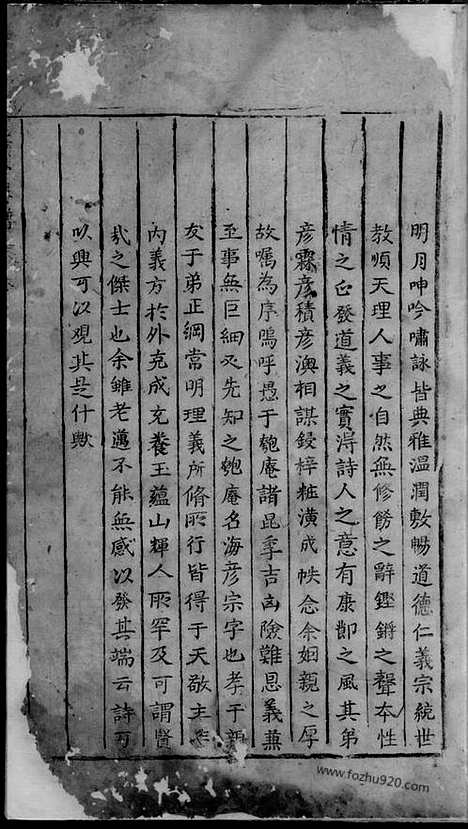 明月呻吟嘯詠皆典雅溫潤敷暢道德仁義宗統世
教順天理人事之自然無修餙之辭鏗鏘之聲本性
情之正發道義之實得詩人之意有康節之風其弟
彦霖彦積彦澳相謀鋟梓粧潢成帙念余姻親之厚
故囑為序嗚呼愚于匏庵諸昆季吉凶險難恩義兼
至事無巨細又先知之匏庵名海彦宗字也孝于親
友于弟正綱常明理義所脩所行皆得于天敬主
內義方於外克成充養玉蘊山輝人所罕及可謂賢
哉之傑士也余雖老邁不能無感以發其端云詩可
以興可以觀其是什歟
www.fozhu920.com